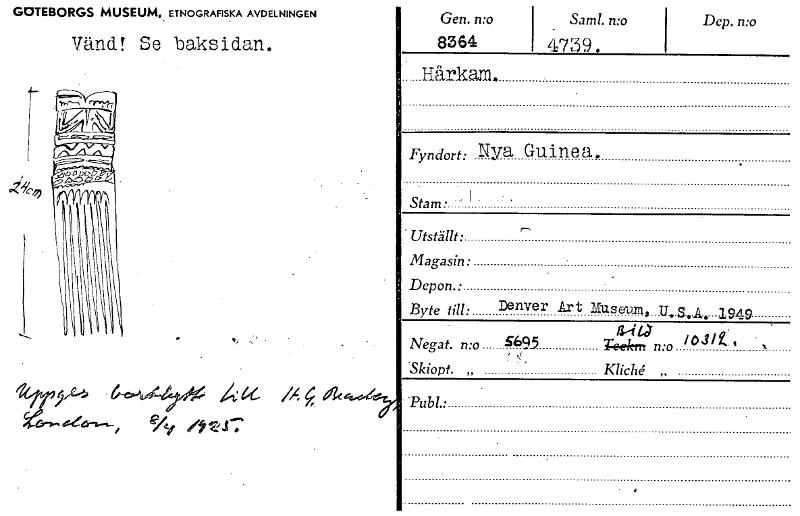 GÖTEBORGS MUSEUM, ETNOGRAFISKA AVDELNINGEN
Vänd! Se baksidan.
24cm
Uppges bortbytt till H.G. Beasley,
London, 8/4 1925.
Gen. n:o Saml. n:o Dep. n:o
8364 4739.
Hårkam.
Fyndort: Nya Guinea.
Stam:
Utställt:
Magasin:
Depon.:
Byte till: Denver Art Museum, U.S.A. 1949
Bild
Negat. n:o 5695 Teckn n:o 10312.
Skiopt. „ Kliché „
Publ.: